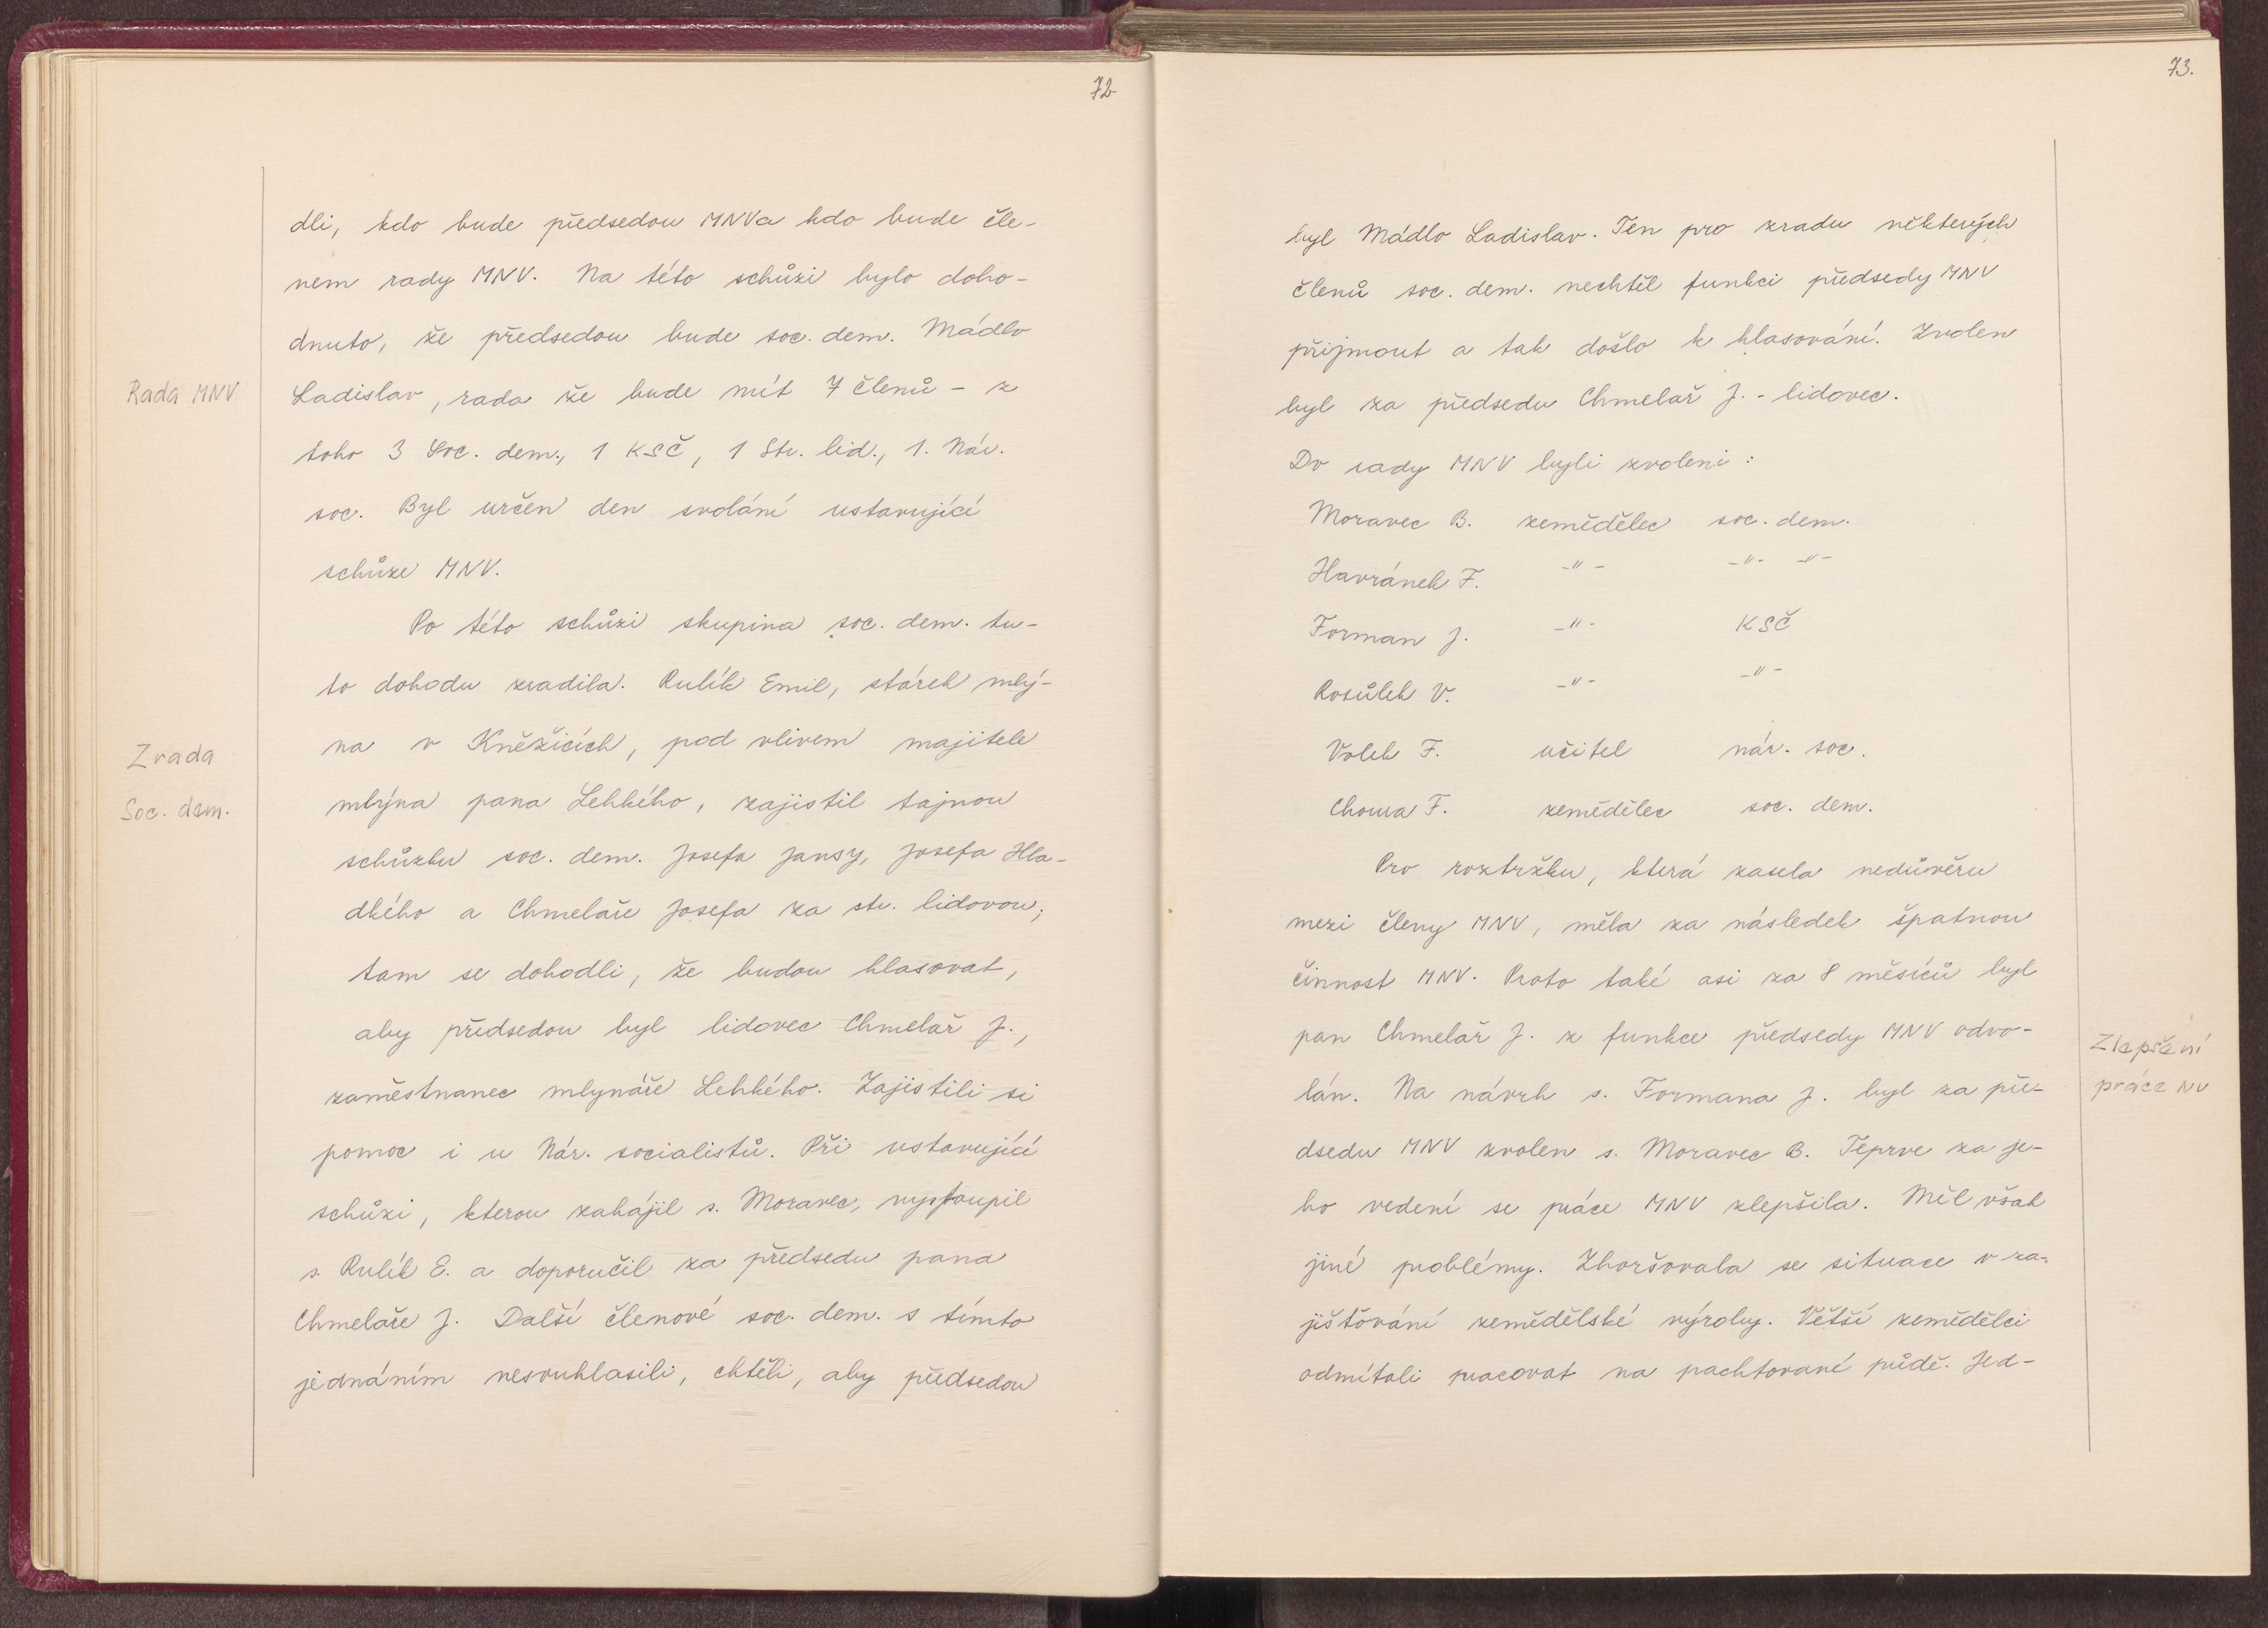 72.
dli, kdo bude předsedou MNV a kdo bude čle-
nem rady MNV. Na této schůzi bylo doho-
dnuto, že předsedou bude soc. dem. Mádlo
Rada MNV
Ladislav, rada že bude mít 7 členů - z
toho 3 Soc. dem., 1 KSČ, 1 Str. lid., 1. Nár.
soc. Byl určen den svolání ustavující
schůze MNV.
Po této schůzi skupina soc. dem. tu-
to dohodu zradila. Rulík Emil, stárek mlý-
na v Kněžicích, pod vlivem majitele
Zrada
Soc. dem.
mlýna pana Lehkého, zajistil tajnou
schůzku soc. dem. Josefa Jansy, Josefa Hla-
dkého a Chmelaře Josefa za str. lidovou;
tam se dohodli, že budou hlasovat,
aby předsedou byl lidovec Chmelař J.,
zaměstnanec mlynáře Lehkého. Zajistili si
pomoc i u Nár. socialistů. Při ustavující
schůzi, kterou zahájil s. Moravec, vystoupil
s. Rulík E. a doporučil za předsedu pana
Chmelaře J. Další členové soc. dem. s tímto
jednáním nesouhlasili, chtěli, aby předsedou
73.
byl Mádlo Ladislav. Ten pro zradu některých
členů soc. dem. nechtěl funkci předsedy MNV
přijmout a tak došlo k hlasování. Zvolen
byl za předsedu Chmelař J. - lidovec.
Do rady MNV byli zvoleni:
Moravec B. zemědělec soc. dem.
Havránek F. -"- -"- -"-
Forman J. -"- KSČ
Rosůlek V. -"- -"-
Volek F. učitel nár. soc.
Chorura F. zemědělec soc. dem.
Pro roztržku, která zasela nedůvěru
mezi členy MNV, měla za následek špatnou
činnost MNV. Proto také asi za 8 měsíců byl
pan Chmelař J. z funkce předsedy MNV odvo-
Zlepšení
práce NV
lán. Na návrh s. Formana J. byl za pře-
dsedu MNV zvolen s. Moravec B. Teprve za je-
ho vedení se práce MNV zlepšila. Měl však
jiné problémy. Zhoršovala se situace v za-
jišťování zemědělské výroby. Větší zemědělci
odmítali pracovat na pachtované půdě. Jed-